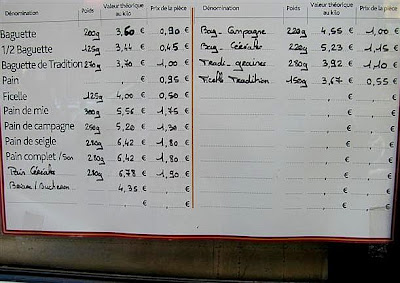 Dénomination Poids Valeur théorique au kilo Prix de la pièce
Baguette 200g 3,60 € 0,90 €
1/2 Baguette 125g 3,44 € 0,45 €
Baguette de Tradition 270g 3,70 € 1,00 €
Pain € 0,95 €
Ficelle 125g 4,00 € 0,50 €
Pain de mie 300g 5,56 € 1,75 €
Pain de campagne 250g 5,20 € 1,30 €
Pain de seigle 280g 6,42 € 1,80 €
Pain complet /Son 280g 6,42 € 1,80 €
Pain Céréales 280g 6,78 € 1,90 €
4,35 € €
€ €
Dénomination Poids Valeur théorique au kilo Prix de la pièce
Bag. Campagne 220g 4,55 € 1,00 €
Bag. Céréales 220g 5,23 € 1,15 €
Tradi. graines 280g 3,92 € 1,10 €
Ficelle Tradition 150g 3,67 € 0,55 €
€ €
€ €
€ €
€ €
€ €
€ €
€ €
€ €